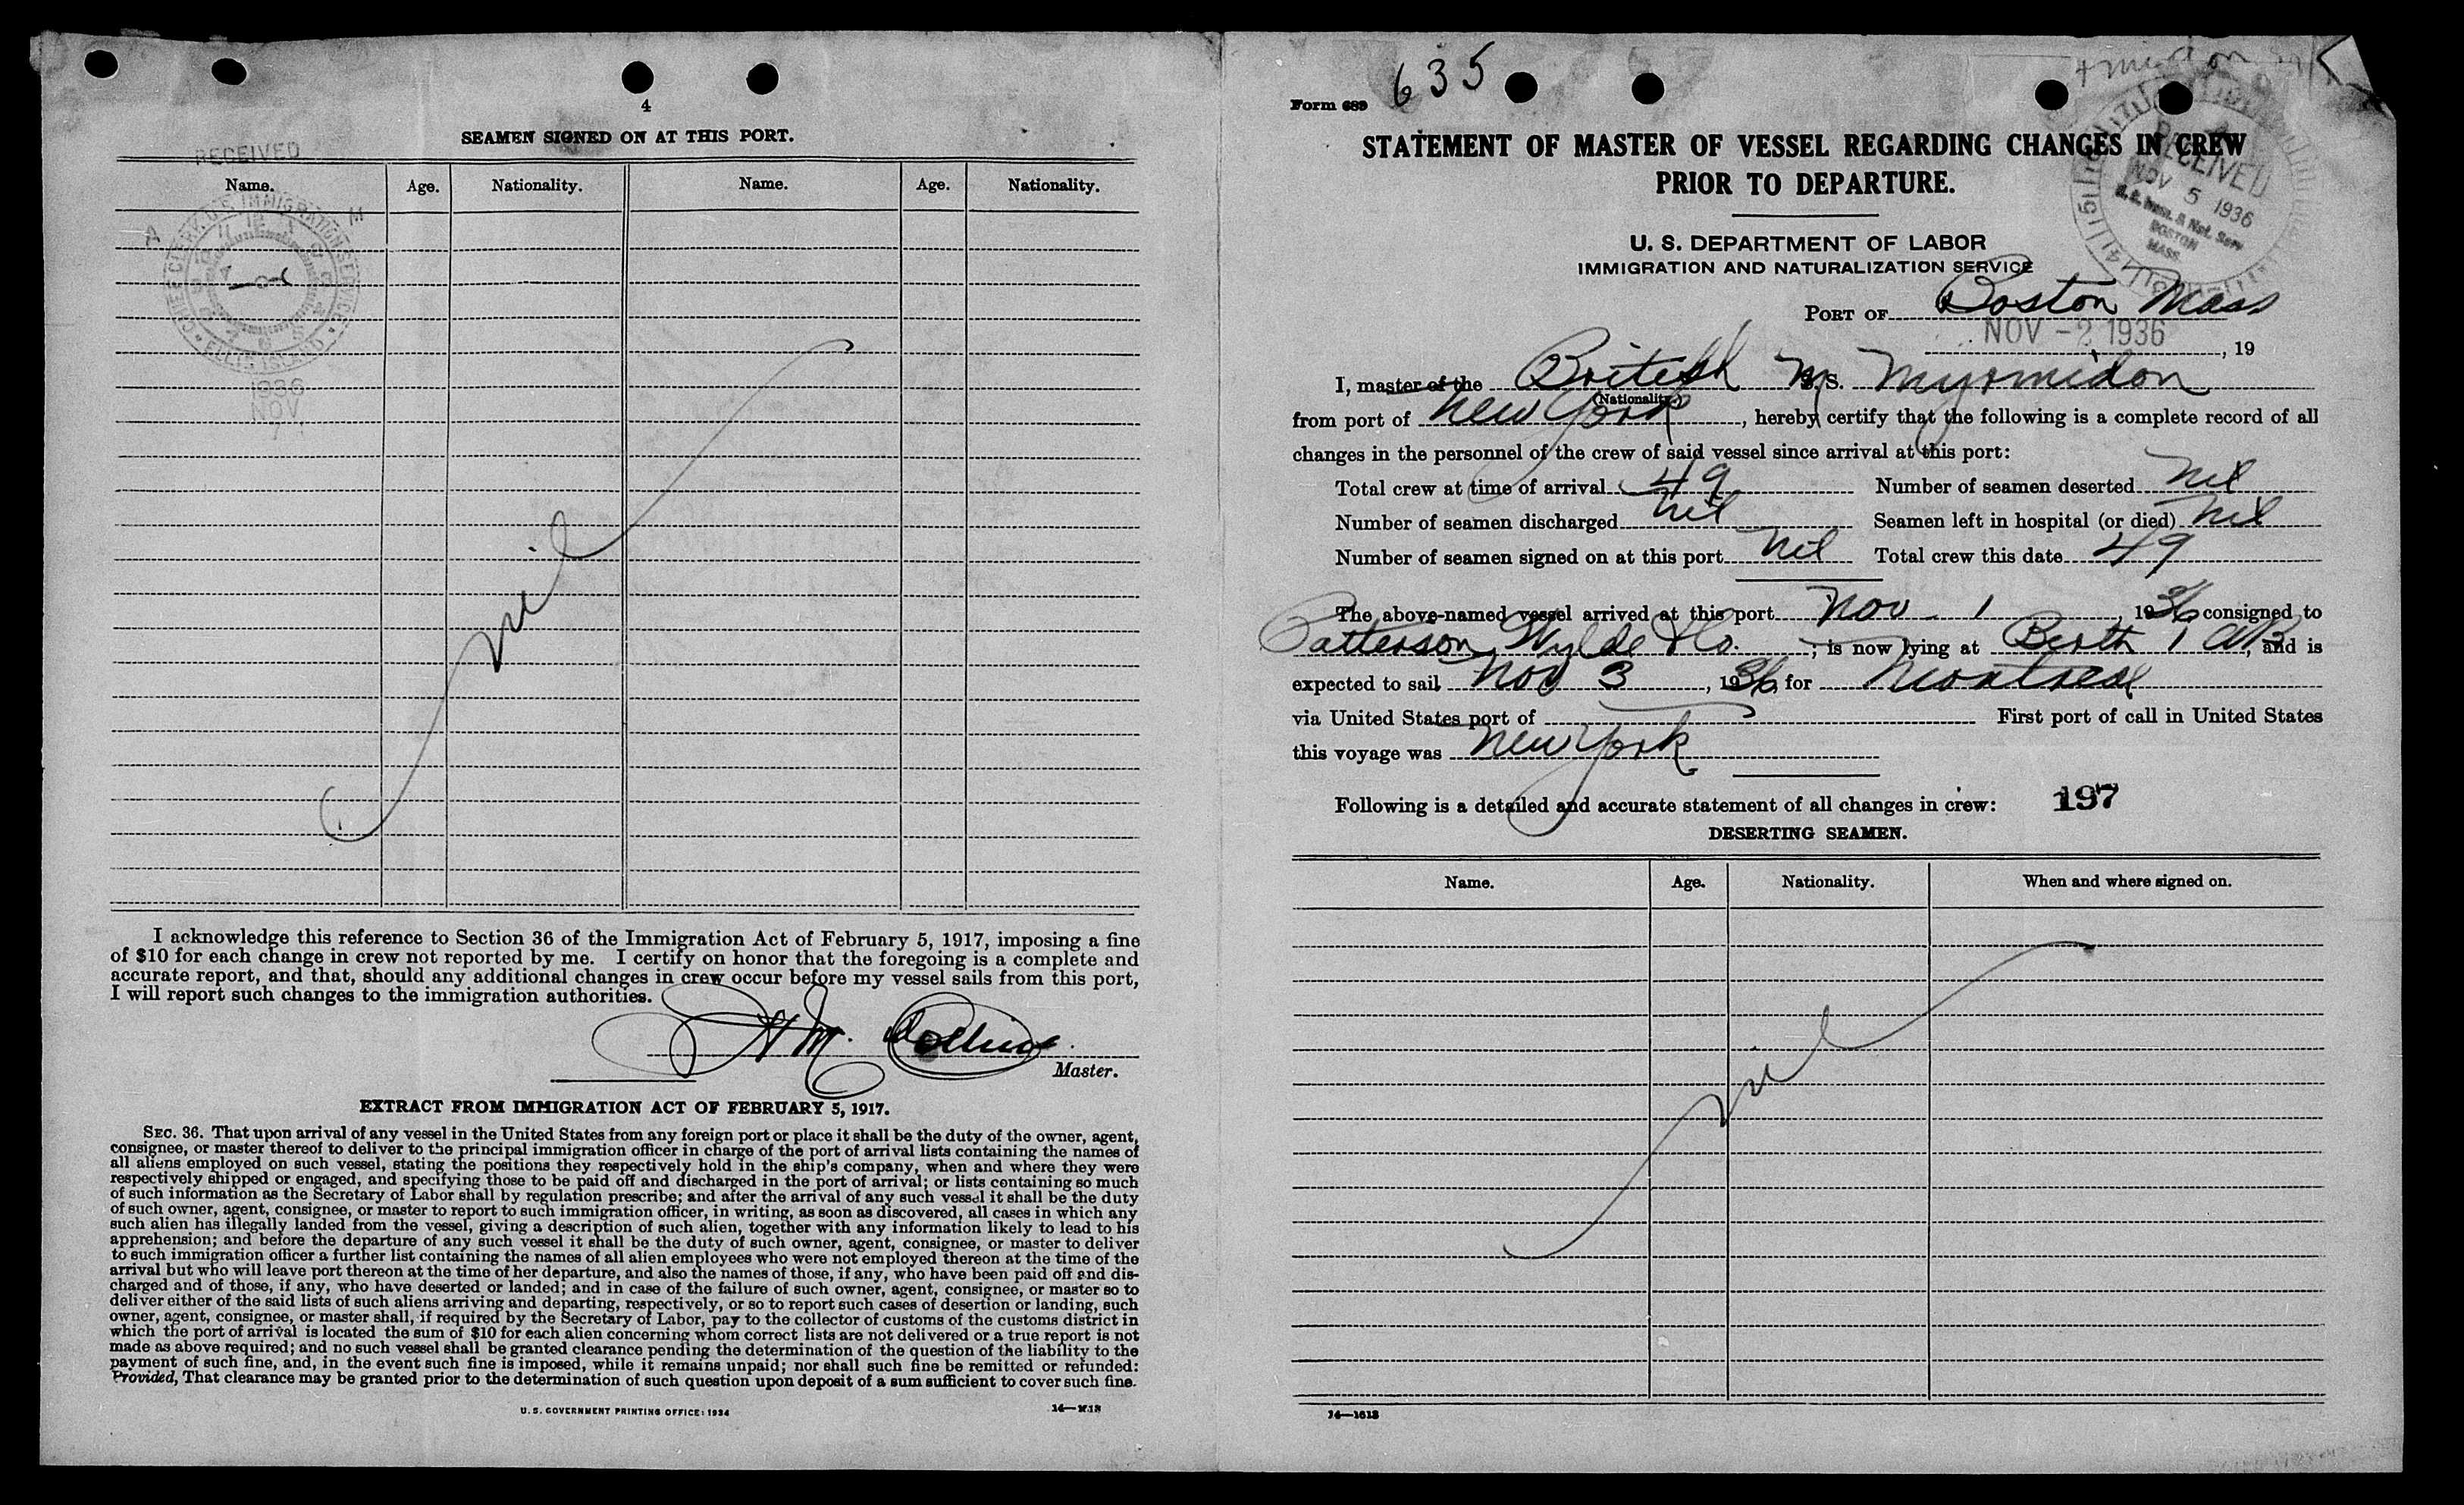 4
SEAMEN SIGNED ON AT THIS PORT.
RECEIVED
Name. Age. Nationality. Name. Age. Nationality.
A M
CHIEF CLERK, U.S. IMMIGRATION SERVICE
ELLIS ISLAND
1936
NOV
nil
I acknowledge this reference to Section 36 of the Immigration Act of February 5, 1917, imposing a fine
of $10 for each change in crew not reported by me. I certify on honor that the foregoing is a complete and
accurate report, and that, should any additional changes in crew occur before my vessel sails from this port,
I will report such changes to the immigration authorities.
Master.
EXTRACT FROM IMMIGRATION ACT OF FEBRUARY 5, 1917.
SEC. 36. That upon arrival of any vessel in the United States from any foreign port or place it shall be the duty of the owner, agent,
consignee, or master thereof to deliver to the principal immigration officer in charge of the port of arrival lists containing the names of
all aliens employed on such vessel, stating the positions they respectively hold in the ship's company, when and where they were
respectively shipped or engaged, and specifying those to be paid off and discharged in the port of arrival; or lists containing so much
of such information as the Secretary of Labor shall by regulation prescribe; and after the arrival of any such vessel it shall be the duty
of such owner, agent, consignee, or master to report to such immigration officer, in writing, as soon as discovered, all cases in which any
such alien has illegally landed from the vessel, giving a description of such alien, together with any information likely to lead to his
apprehension; and before the departure of any such vessel it shall be the duty of such owner, agent, consignee, or master to deliver
to such immigration officer a further list containing the names of all alien employees who were not employed thereon at the time of the
arrival but who will leave port thereon at the time of her departure, and also the names of those, if any, who have been paid off and dis-
charged and of those, if any, who have deserted or landed; and in case of the failure of such owner, agent, consignee, or master so to
deliver either of the said lists of such aliens arriving and departing, respectively, or so to report such cases of desertion or landing, such
owner, agent, consignee, or master shall, if required by the Secretary of Labor, pay to the collector of customs of the customs district in
which the port of arrival is located the sum of $10 for each alien concerning whom correct lists are not delivered or a true report is not
made as above required; and no such vessel shall be granted clearance pending the determination of the question of the liability to the
payment of such fine, and, in the event such fine is imposed, while it remains unpaid; nor shall such fine be remitted or refunded:
Provided, That clearance may be granted prior to the determination of such question upon deposit of a sum sufficient to cover such fine.
U. S. GOVERNMENT PRINTING OFFICE: 1934
Form 689 635
STATEMENT OF MASTER OF VESSEL REGARDING CHANGES IN CREW
PRIOR TO DEPARTURE.
RECEIVED
NOV 5 1936
U. S. Imm. & Nat. Serv
BOSTON
MASS.
U. S. DEPARTMENT OF LABOR
IMMIGRATION AND NATURALIZATION SERVICE
PORT OF Boston Mass
NOV -2 1936, 19
I, master of the British M. S. Myrmidon
(Nationality)
from port of New York, hereby certify that the following is a complete record of all
changes in the personnel of the crew of said vessel since arrival at this port:
Total crew at time of arrival 49 Number of seamen deserted nil
Number of seamen discharged nil Seamen left in hospital (or died) nil
Number of seamen signed on at this port nil Total crew this date 49
The above-named vessel arrived at this port Nov - 1, 1936 consigned to
Patterson Wylde & Co.; is now lying at Berth 1 AB, and is
expected to sail Nov 3, 1936, for Montreal
via United States port of First port of call in United States
this voyage was New York
Following is a detailed and accurate statement of all changes in crew: 197
DESERTING SEAMEN.
Name. Age. Nationality. When and where signed on.
nil
14—1613